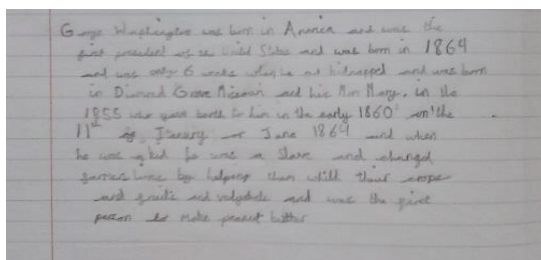 George Washington was born in America and was the
first president of the United States and was born in 1864
and was only 6 weeks when he got kidnapped and was born
in Diamond Grove Missouri and his Mum Mary, in the
1855 who gave berth to him in the early 1860s on the
11th of January or June 1864 and when
he was a kid he was a slave and changed
farmers lives by helping them with their crops
and fruits and vegetable and was the first
person to make peanut butter